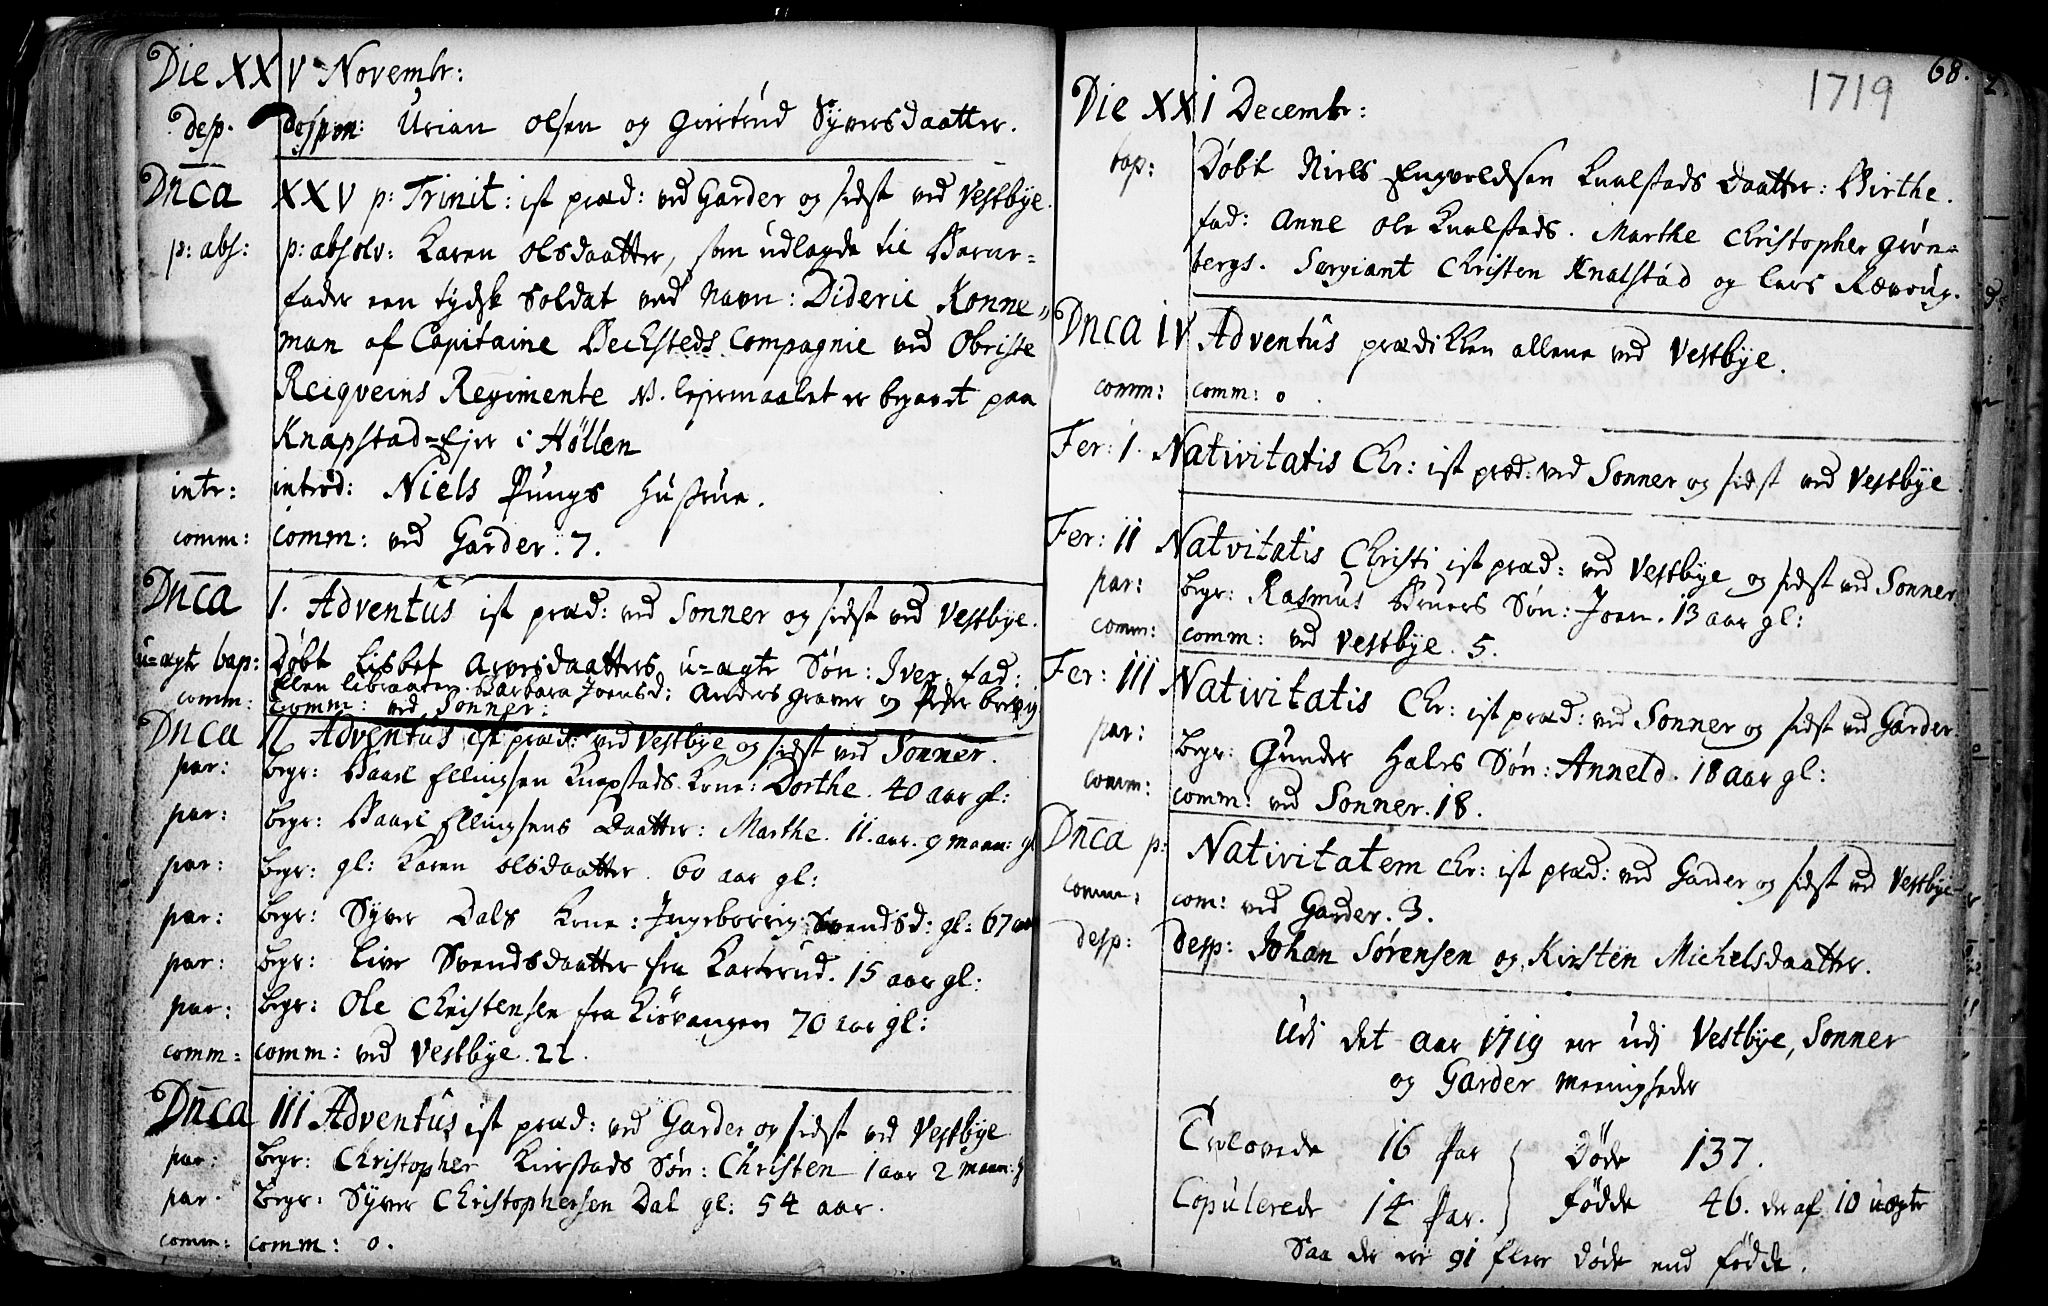 Die XXV Novembr:
desp. despon: Urian Olsen og Giertrud Syversdaatter.
Dnca XXV p: Trinit: ist præd: ved Garder og sidst ved Vestbye.
p: abs: p: absolv: Karen Olsdaatter, som udlagde til Barne-
fader een tydsk Soldat ved Navn: Dideric Konne=
man af Capitaine Becksteds Compagnie ved Obriste
Reiqveins Regimente NB. lejermaalet er begaaet paa
Knapstad=Ejer i Höllen
intr: introd: Niels Pungs Hustrue.
comm: comm: ved Garder. 7.
Dnca 1. Adventûs ist præd: ved Sonner og sidst ved Vestbye.
u=ægte bap: Döbt Lisbet Aversdaatters u=ægte Sön: Iver. fad:
Ellen Barbara Joensd: Anders Graver og Peder
comm: comm: ved Sonner:
Dnca II Adventûs ist præd: ved Vestbye og sidst ved Sonner.
par: begr: Baarl Ellingsen Knapstads Kone: Dorthe. 40 aar gl:
par: begr: Baarl Ellingsens Daatter: Marthe. 11. aar. 9 maan: gl
par: begr: gl: Karen Olsdaatter. 60 aar gl:
par: begr: Syver Dals Kone: Ingeborrig Svendsd: gl: 67 aar
par: begr: Live Svendsdaatter fra Karterud. 15 aar gl:
par: begr: Ole Christensen fra Kiövangen 70 aar gl:
comm: comm: ved Vestbye. 22.
Dnca III Adventûs ist præd: ved Garder og sidst ved Vestbye
par: begr: Christopher Sön: Christen 1 aar 2 maan: g
par. begr: Syver Christophersen Dal gl: 54 aar.
comm: comm: 0.
68.
1719
Die XXI Decembr:
bap: Döbt Niels Engvoldsen Kualstads Daatter: Birthe.
fad: Anne Ole Kualstads. Marthe Christopher Grön=
bergs. Sergiant Christen Knalstad og Lars Rævoug.
Dnca IV Adventûs prædikken allene ved Vestbye.
comm: comm: 0.
Fer: 1. Nativitatis Chr: ist præd: ved Sonner og sidst ved Vestbye
Fer: II Natvitatis Christi ist præd: ved Vestbye og sidst ved Sonner
par: begr: Rasmus Bruers Sön: Joen. 13 aar gl:
comm: comm: ved Vestbye. 5.
Fer: III Nativitatis Chr: ist præd: ved Sonner og sidst ved Garder
par: begr: Gunder Hales Sön: Anneld. 18 aar gl:
comm: comm: ved Sonner. 18.
Dnca p: Nativitatem Chr: ist præd: ved Garder og sidst ved Vestbye
comm: com: ved Garder. 3.
desp: desp: Johan Sörensen og Kirsten Michelsdaatter.
Udi det aar 1719 er udi Vestbye, Sonner
og Garder meenigheder
Trolovede 16 Par Döde 137.
Copulerede 14 Par. Födde 46. der af 10 uægte
Saa der ere 91 flere döde end födde.